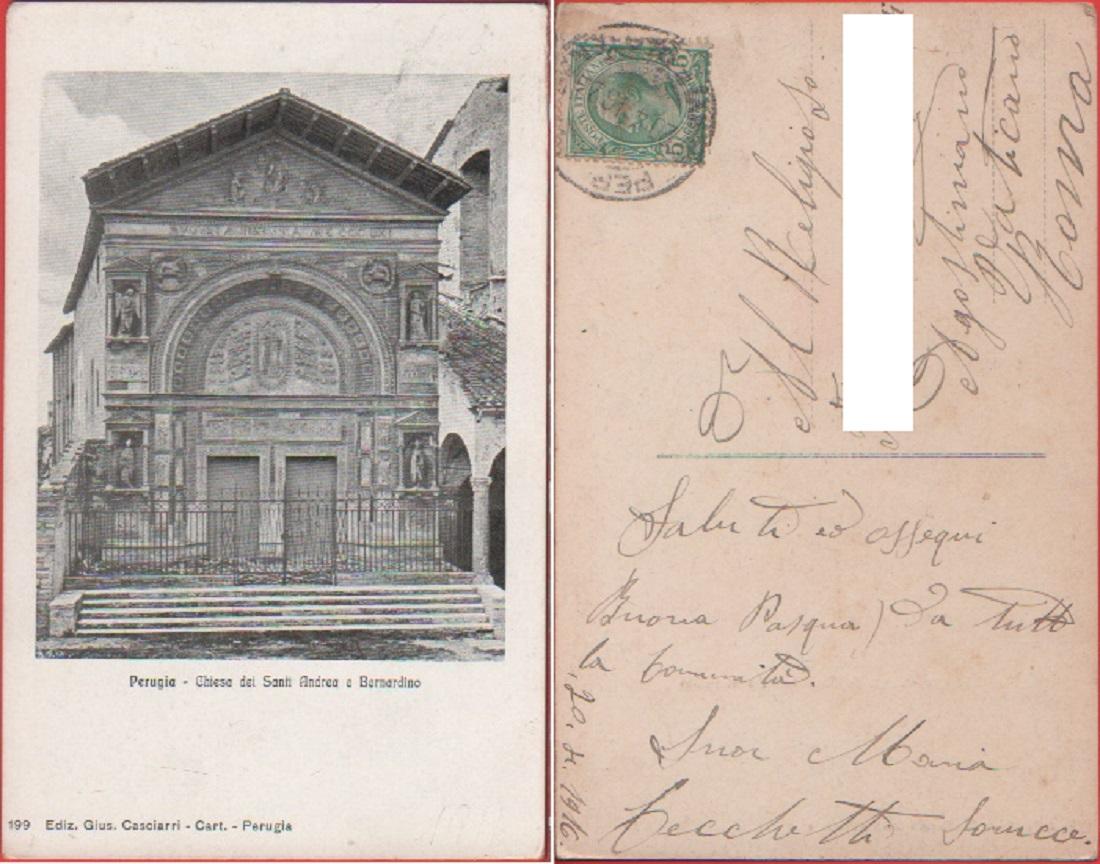 Perugia - Chiesa dei Santi Andrea e Bernardino
199 Ediz. Gius. Casciarri - Cart. - Perugia
POSTE ITALIANE
5
5
PER
Al Religioso
Agostiniano
Vaticano
Roma
Saluti ed ossequi
Buona Pasqua) Da tutt
la Comunità.
Suor Maria
Cecchetti
1916